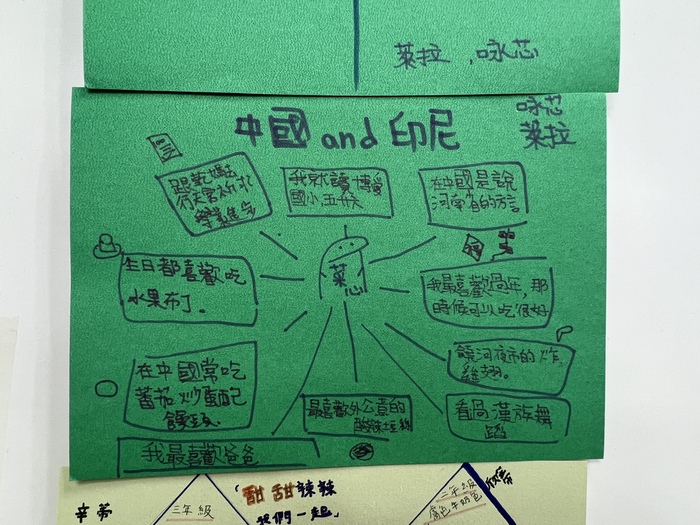 萊拉，咏芯
中國 and 印尼
咏芯
萊拉
跟著媽去
行天宮祈求
學業進步
我就讀博愛
國小，五月天
在中國是說
河南省的方言
生日都喜歡吃
水果布丁。
萊
芯
我最喜歡過年，那
時候可以吃很好
饒河夜市的炸
雞翅。
在中國常吃
蕃茄炒蛋配
饅頭
最喜歡外公煮的
酸辣土豆絲
看過漢族舞
蹈
我最喜歡爸爸
三年級
「酣甜辣辣
我們一起」
二年級